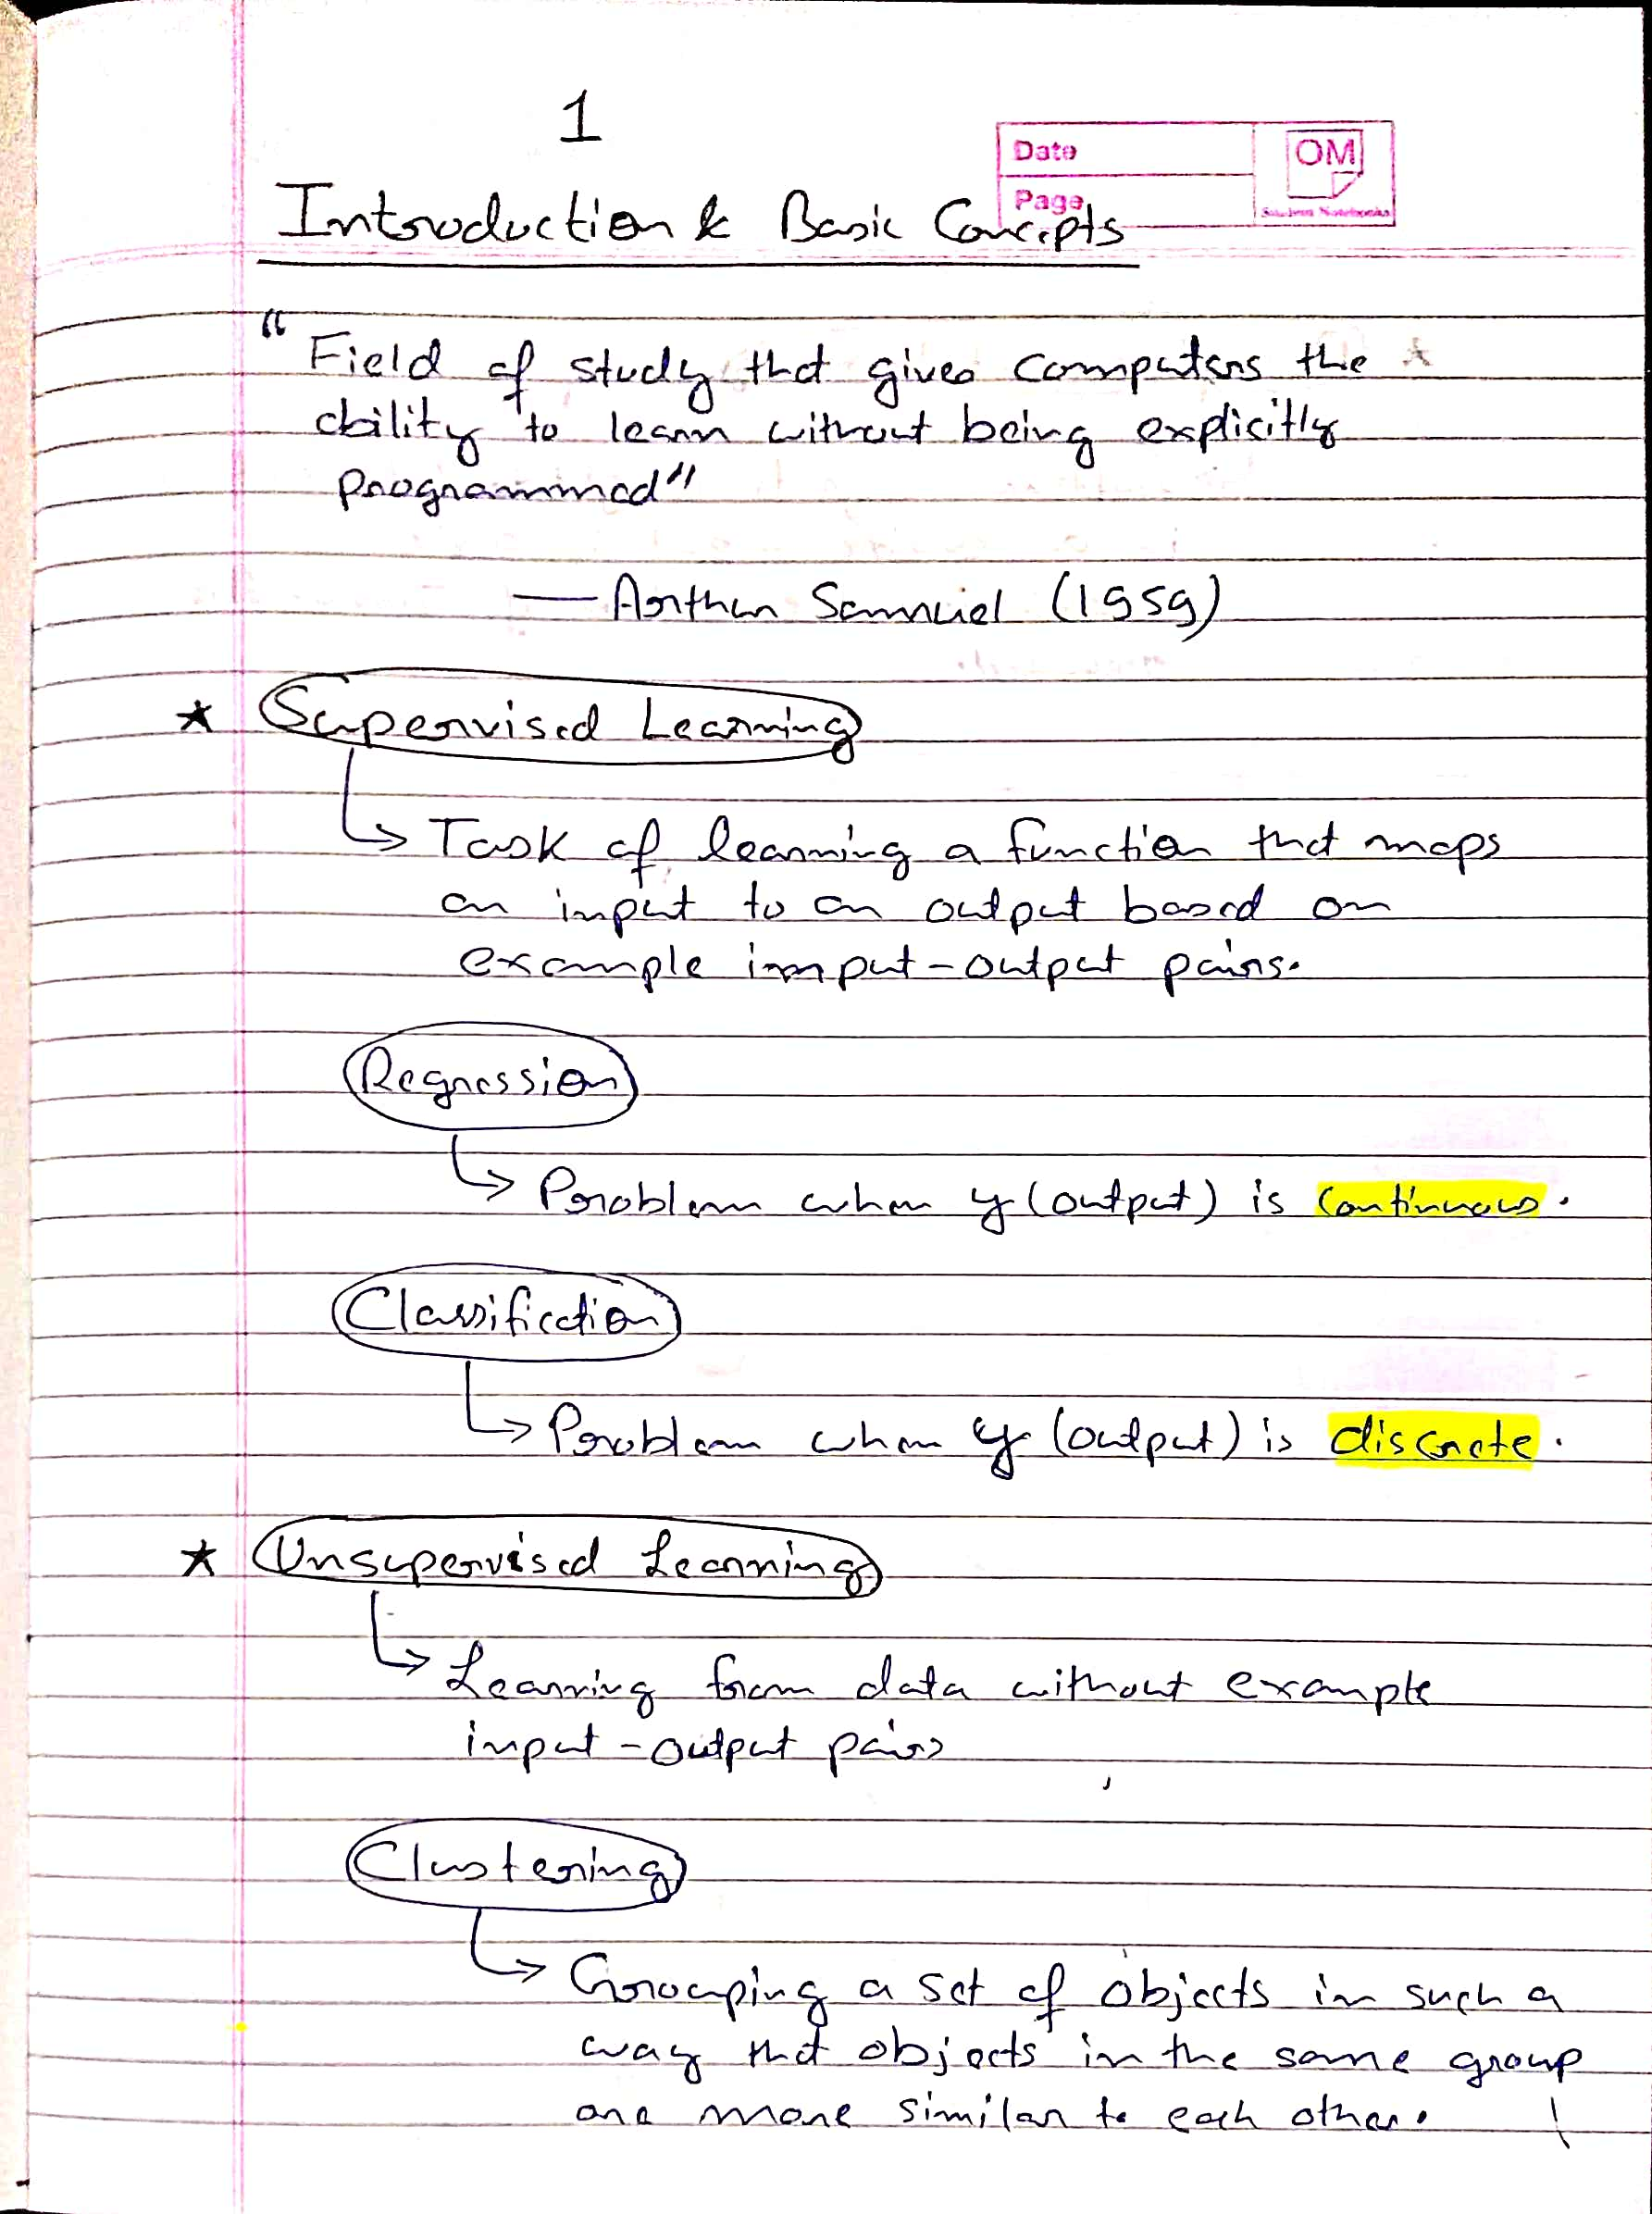 1
Date
OM
Page
Student Notebooks
Introduction & Basic Concepts
"Field of study that gives computers the
ability to learn without being explicitly
programmed"
— Arthur Samuel (1959)
★ Supervised Learning
↳ Task of learning a function that maps
an input to an output based on
example input-output pairs.
Regression
↳ Problem when y (output) is continuous.
Classification
↳ Problem when y (output) is discrete.
★ Unsupervised Learning
↳ Learning from data without example
input-output pairs
Clustering
↳ Grouping a set of objects in such a
way that objects in the same group
are more similar to each other.